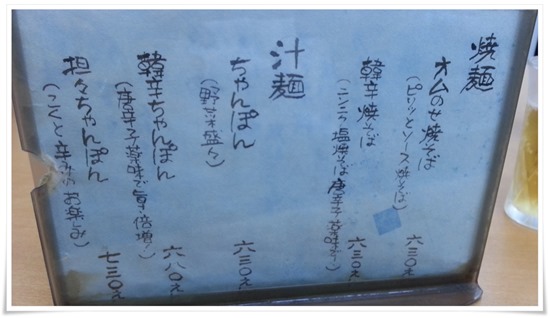 焼麺
オムのせ焼そば 六三〇え
(ピリッとソース焼そば)
韓辛焼そば 六三〇え
(ニンニク塩焼そば唐辛子薬味で)
汁麺
ちゃんぽん 六三〇え
(野菜盛々)
韓辛ちゃんぽん 六八〇え
(唐辛子薬味で旨さ倍増!)
担々ちゃんぽん 七三〇え
(こくと辛みがお楽しみ)